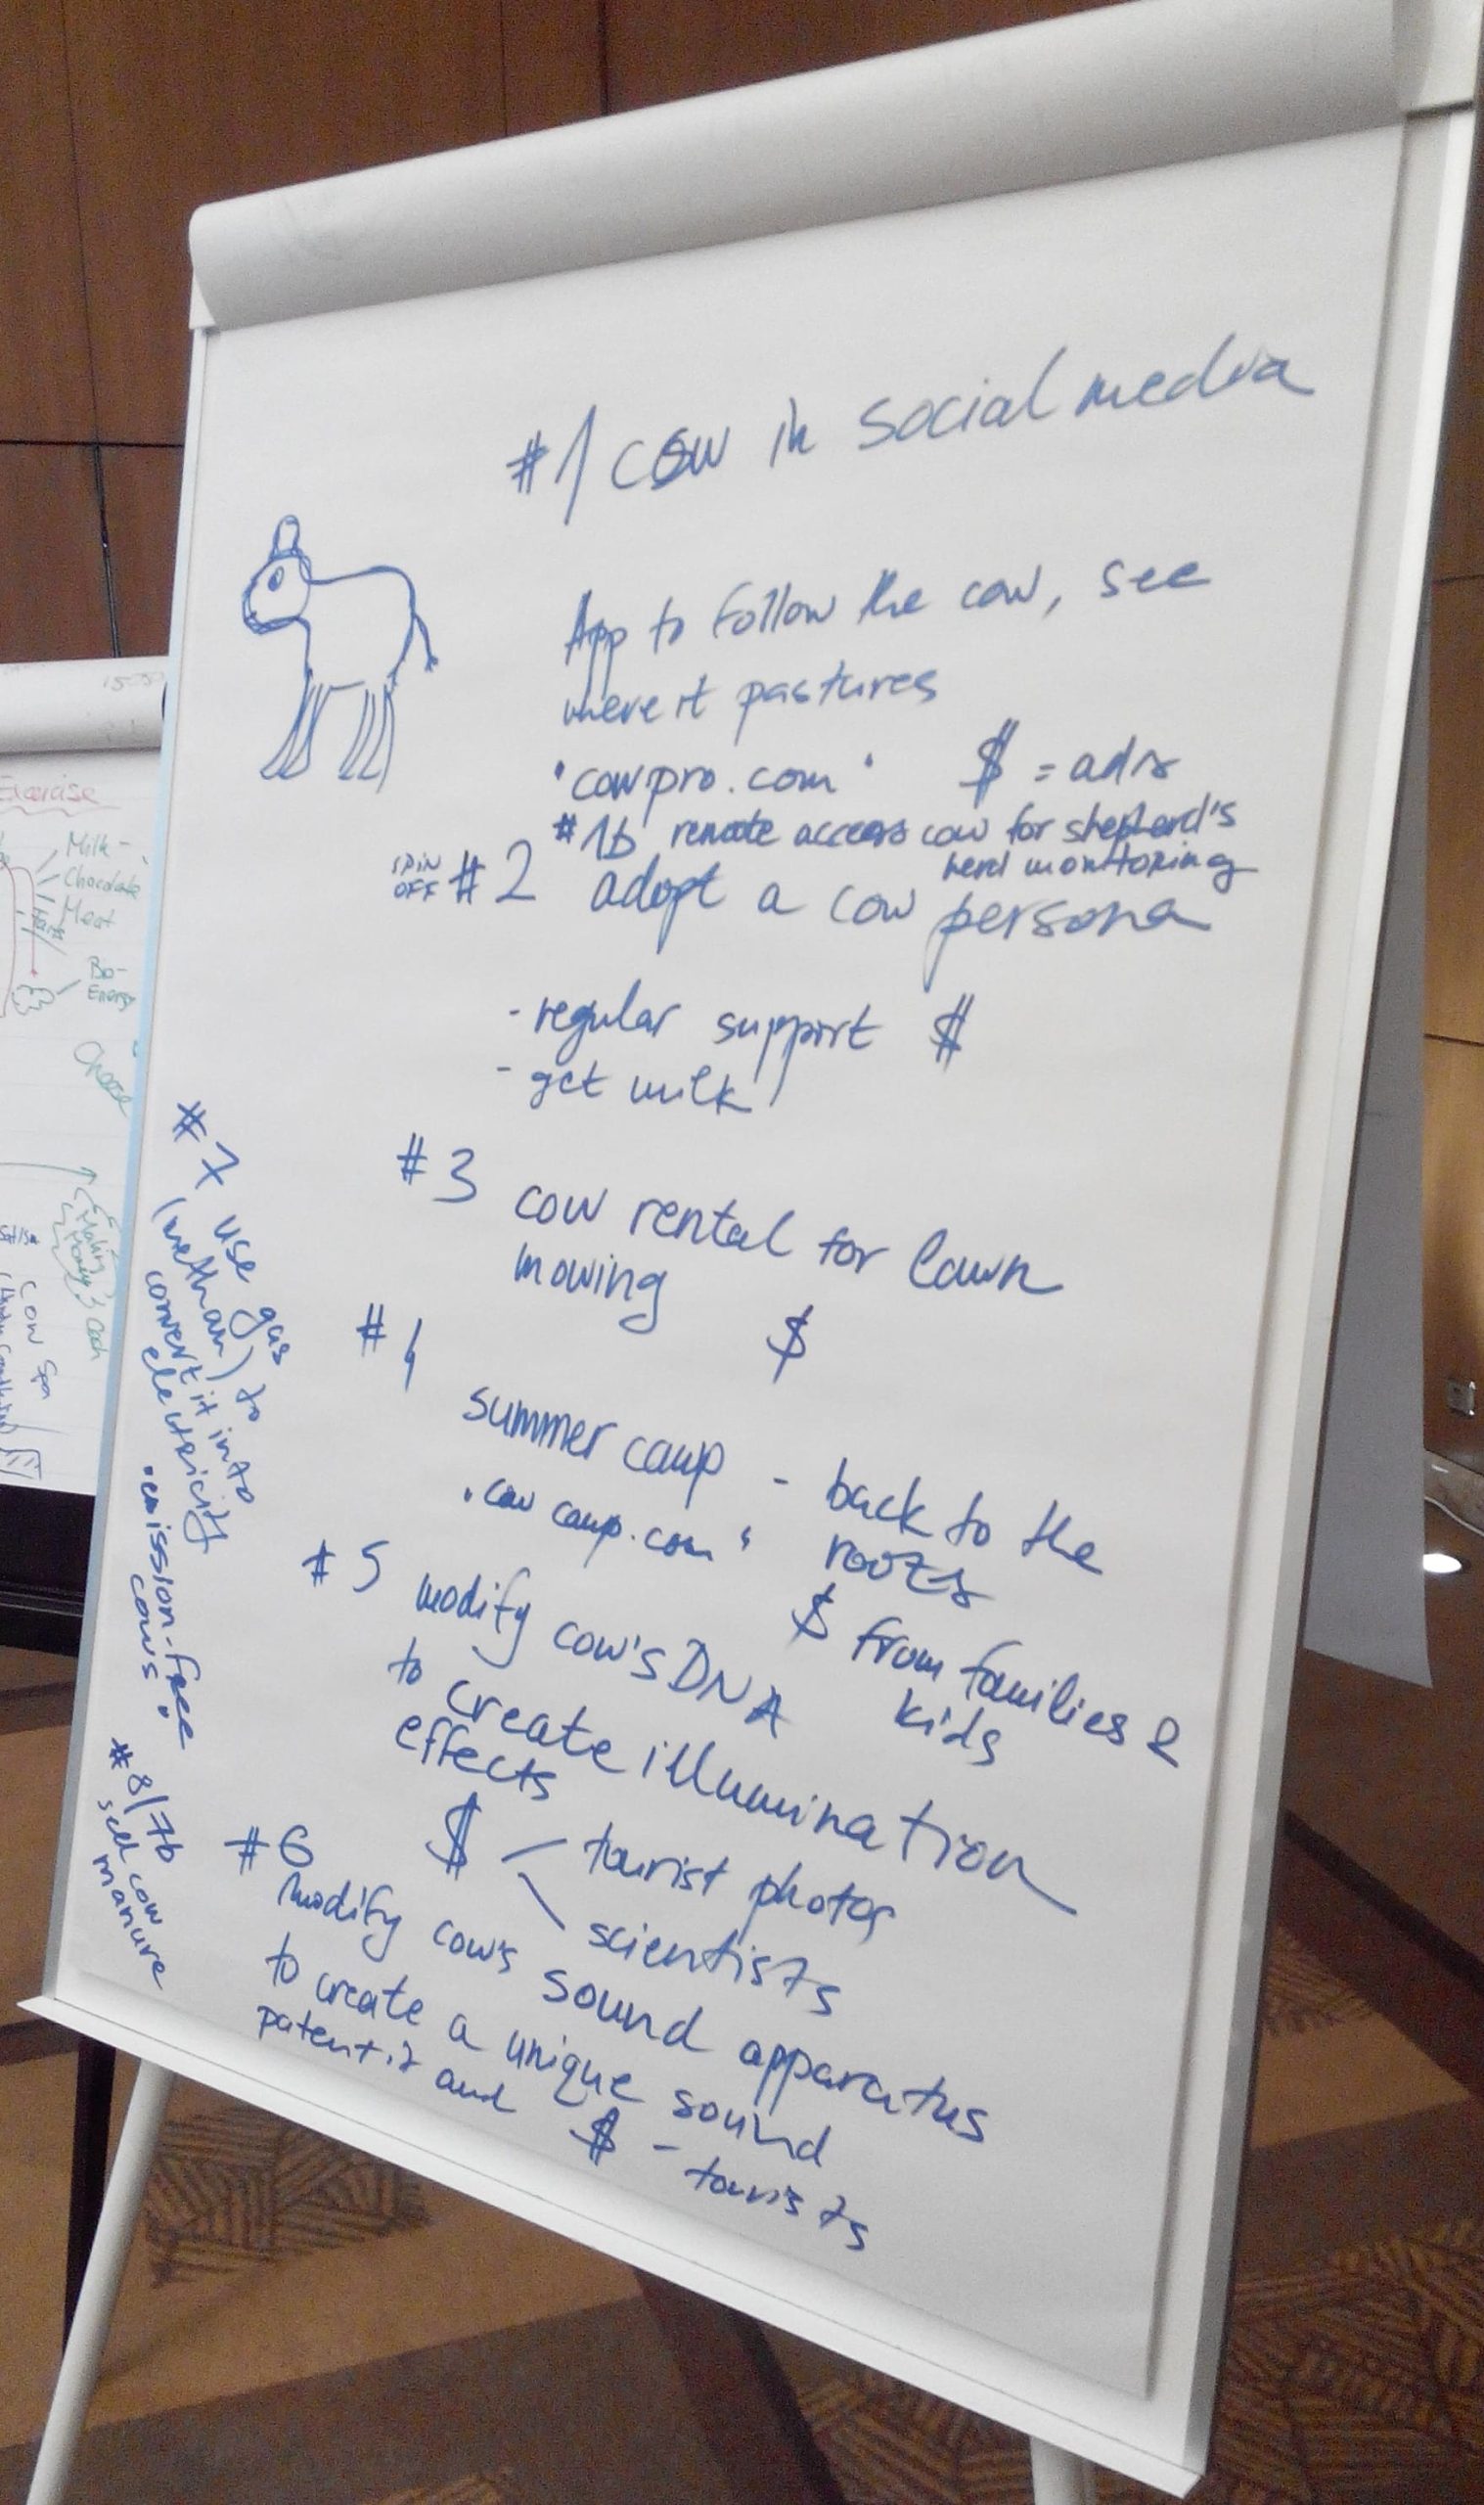 #1 cow in social media
App to follow the cow, see
where it pastures
"cowpro.com" $ = ads
#1b remote access cow for shepherd's
herd monitoring
SPIN
OFF #2 adopt a cow persona
- regular support $
- get milk
#3 cow rental for lawn
mowing $
#4
summer camp - back to the
roots
"cow camp.com"
$ from families &
kids
#5 modify cow's DNA
to create illumination
effects
$ tourist photos
scientists
#6
modify cow's sound apparatus
to create a unique sound
patent it and $ - tourists
#7 use gas
(methan) to
convert it into
electricity
"emission-free
cows"
#8/7b
sell cow
manure
Exercise
Milk -
Chocolate
Meat
Bio-
Energy
Cheese
Making
Money
Cash
Cow Spa